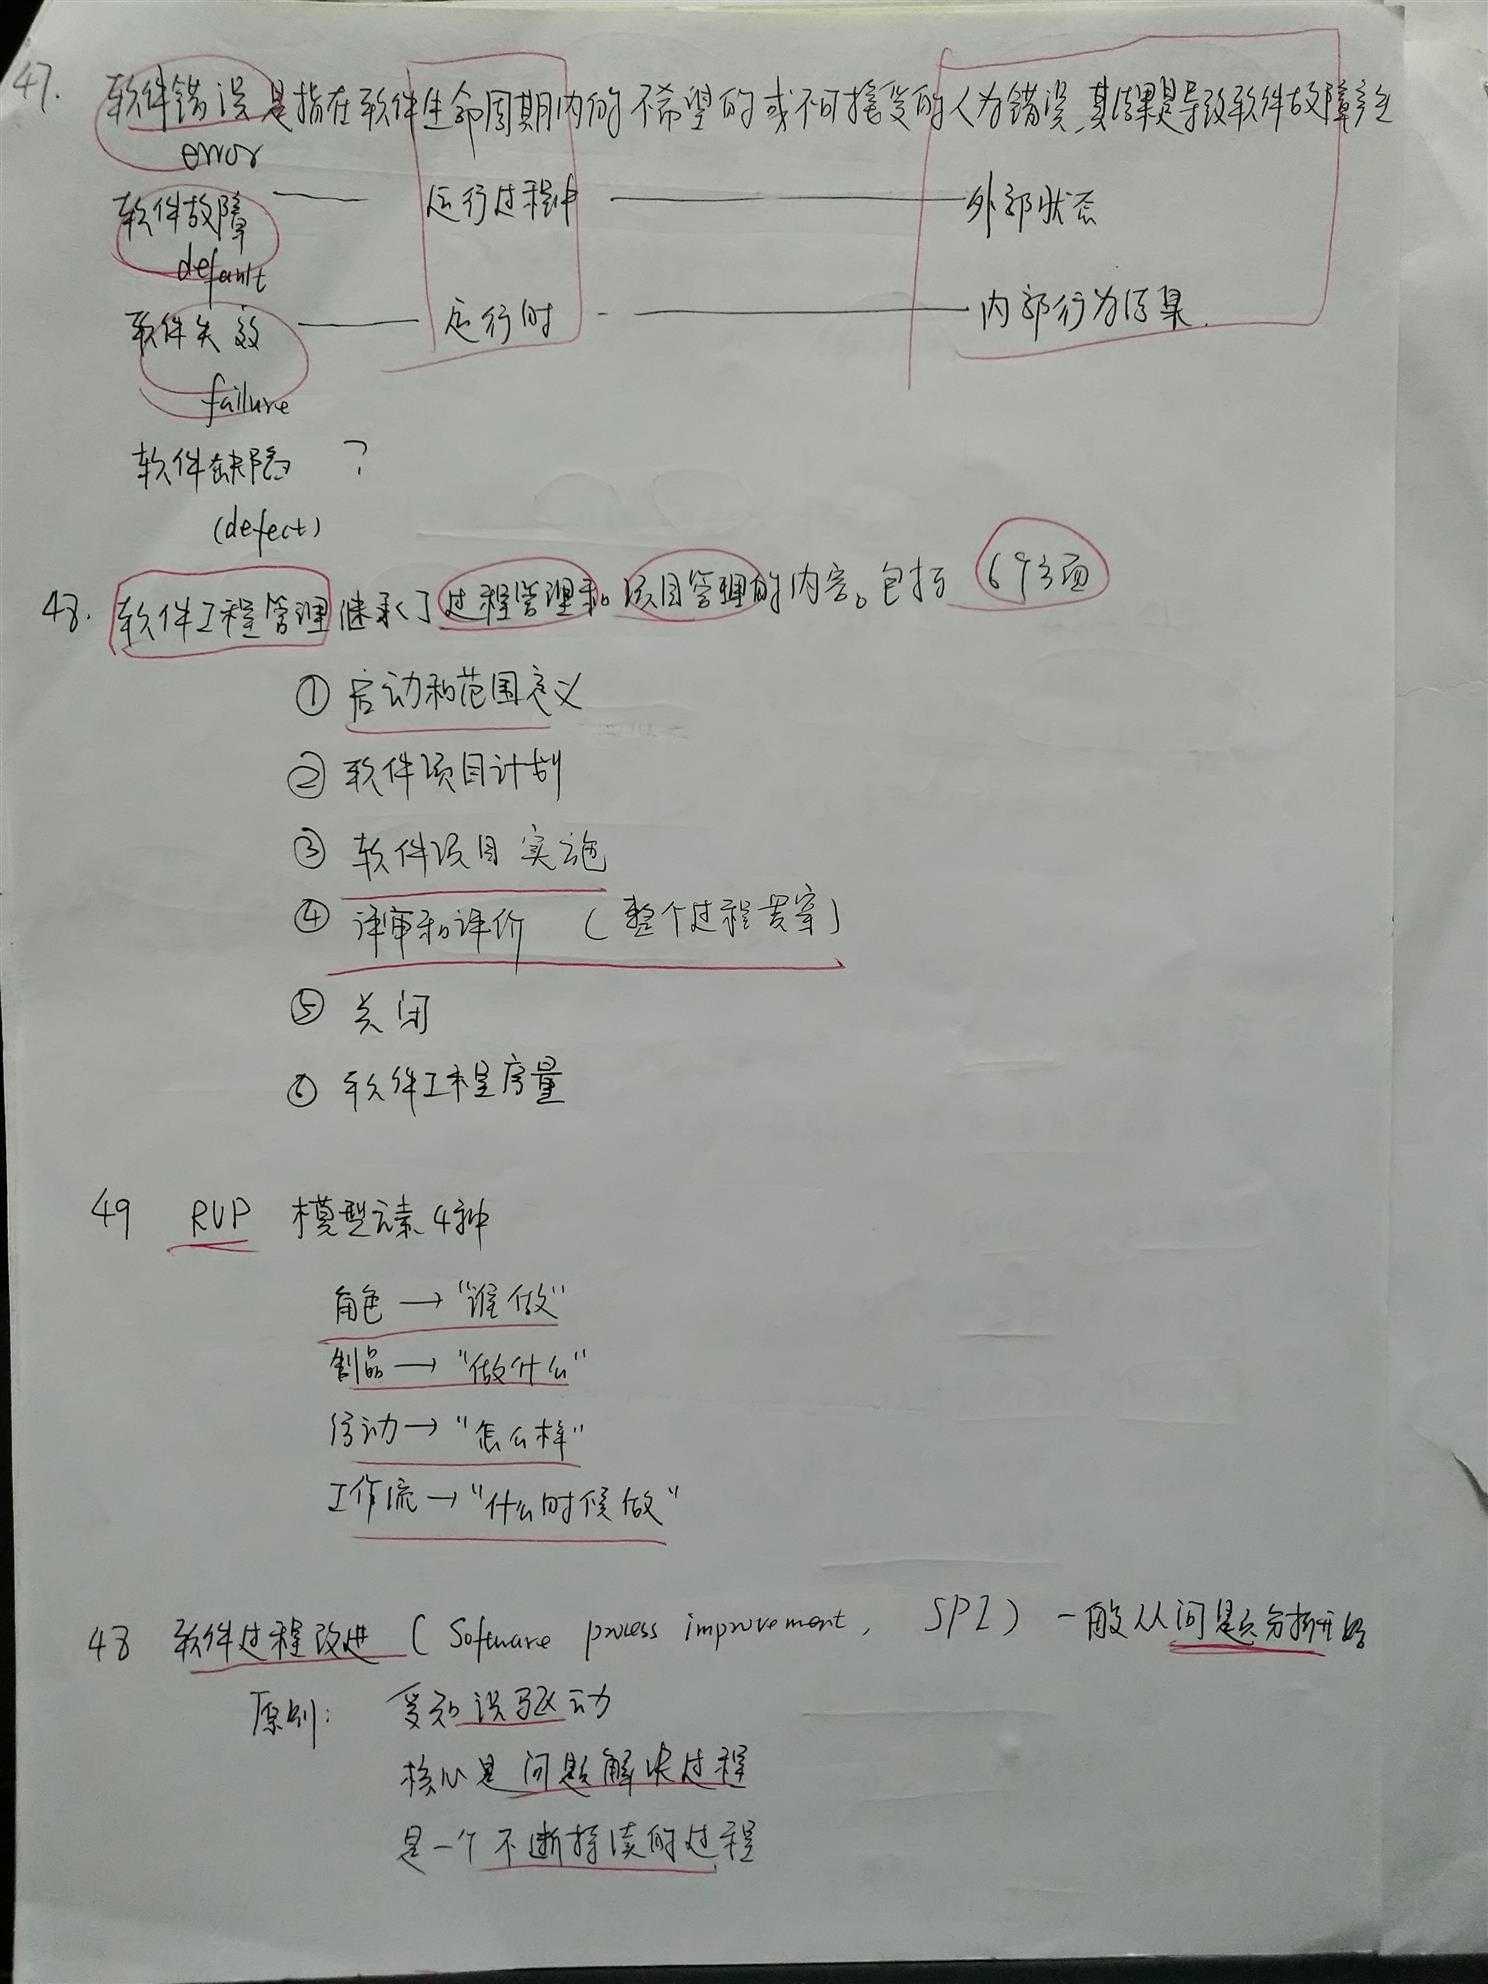 47. 软件错误是指在软件生命周期内的不希望的或不可接受的人为错误，其结果是导致软件故障产生
error
软件故障 —— 运行过程中 —— 外部状态
default
软件失效 —— 运行时 —— 内部行为结果.
failure
软件缺陷 ?
(defect)
48. 软件工程管理继承了过程管理和项目管理的内容。包括 6个方面
① 启动和范围定义
② 软件项目计划
③ 软件项目实施
④ 评审和评价 (整个过程贯穿)
⑤ 关闭
⑥ 软件工程度量
49 RUP 模型元素4种
角色 → "谁做"
制品 → "做什么"
活动 → "怎么样"
工作流 → "什么时候做"
48 软件过程改进 ( Software process improvement, SPI ) 一般从问题分析开始
原则: 受知识驱动
核心是问题解决过程
是一个不断持续的过程